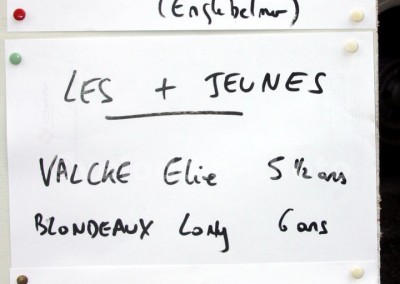 (Englebelmer)
LES + JEUNES
VALCKE Elie 5 1/2 ans
BLONDEAUX 6 ans